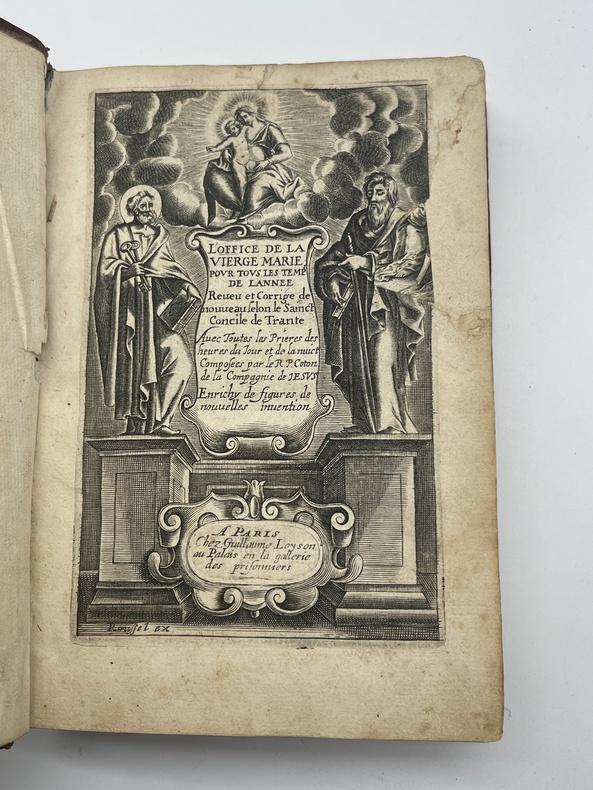 L'OFFICE DE LA
VIERGE MARIE,
POVR TOVS LES TEMPS
DE LANNEE
Reueu et Corrige de
nouueau selon le Sainct
Concile de Trante
Auec Toutes les Prieres des
heures du Jour et de la nuict
Composées par le R.P. Coton
de la Compagnie de JESVS
Enrichy de figures de
nouuelles invention
A PARIS
Chez Guillaume Loyson
au Palais en la gallerie
des prisonniers
Roussel ex